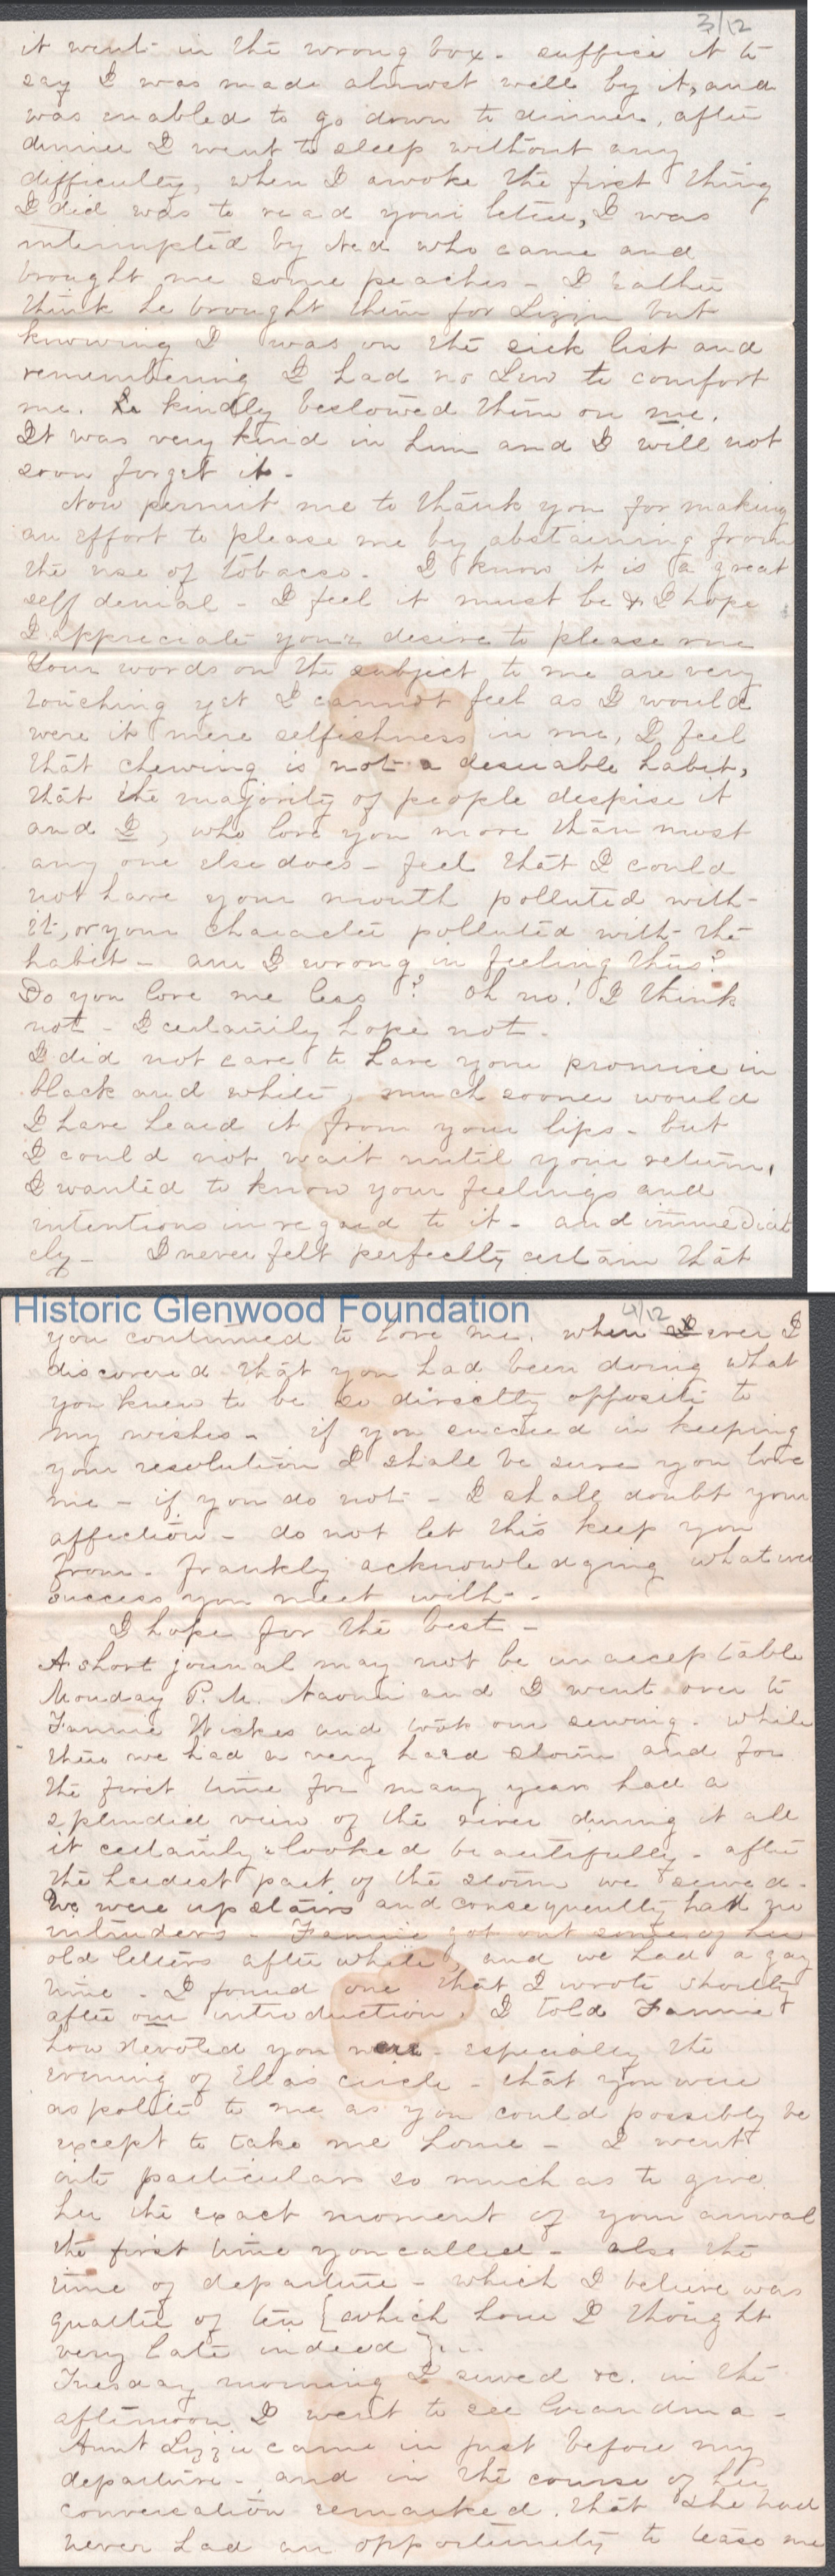 3/12
it went in the wrong box - suffice it to
say I was made almost well by it, and
was enabled to go down to dinner, after
dinner I went to sleep without any
difficulty, when I awoke the first thing
I did was to read your letter, I was
interrupted by Ned who came and
brought me some peaches - I rather
think he brought them for Lizzie but
knowing I was on the sick list and
remembering I had no Lew to comfort
me. He kindly bestowed them on me.
It was very kind in him and I will not
soon forget it -
Now permit me to thank you for making
an effort to please me by abstaining from
the use of tobacco. I know it is a great
self denial - I feel it must be & I hope
I appreciate your desire to please me
Your words on the subject to me are very
touching yet I cannot feel as I would
were it mere selfishness in me, I feel
that chewing is not a desirable habit,
that the majority of people despise it
and I, who love you more than most
any one else does - feel that I could
not have your mouth polluted with-
it, or your character polluted with the
habit - am I wrong in feeling thus?
Do you love me less? Oh no! I think
not - I certainly hope not.
I did not care to have your promise in
black and white, much sooner would
I have heard it from your lips - but
I could not wait until your return,
I wanted to know your feelings and
intentions in regard to it - and immediat
ely - I never felt perfectly certain that
Historic Glenwood Foundation
4/12
you continued to love me. when ever I
discovered that you had been doing what
you knew to be so directly opposite to
my wishes - if you succeed in keeping
your resolution I shall be sure you love
me - if you do not - I shall doubt your
affection - do not let this keep you
from - frankly acknowledging whatever
success you meet with -
I hope for the best -
A short journal may not be unacceptable
Monday P. M. Naomi and I went over to
Fannie Wickes and took our sewing - while
there we had a very hard storm and for
the first time for many years had a
splendid view of the river during it all
it certainly looked beautifully - after
the hardest part of the storm we sewed -
We were up stairs and consequently had no
intruders - Fannie got out some of her
old letters after while, and we had a gay
time - I found one that I wrote shortly
after our introduction, I told Fannie
how devoted you were - especially the
evening of Ella's circle - that you were
as polite to me as you could possibly be
except to take me home - I went
into particulars so much as to give
her the exact moment of your arrival
the first time you called - also the
time of departure - which I believe was
quarter of ten [which hour I thought
very late indeed]...
Tuesday morning I sewed &c. in the
afternoon I went to see Grandma -
Aunt Lizzie came in just before my
departure - and in the course of her
conversation remarked, that she had
never had an opportunity to tease me